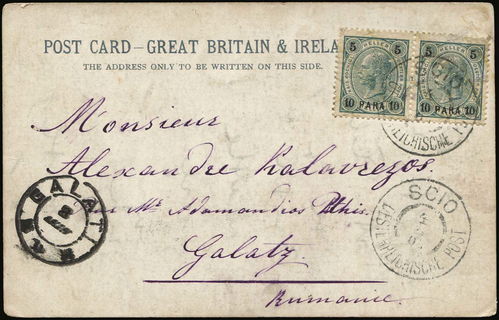 POST CARD—GREAT BRITAIN & IRELA
THE ADDRESS ONLY TO BE WRITTEN ON THIS SIDE.
5 HELLER 5
10 PARA 10
5 HELLER 5
10 PARA 10
Monsieur
Alexandre Kalavrezos.
Mr Adamandios
Galatz
Rumanie.
GALATI
SCIO
OESTERREICHISCHE POST
SCIO
REICHISCHE P